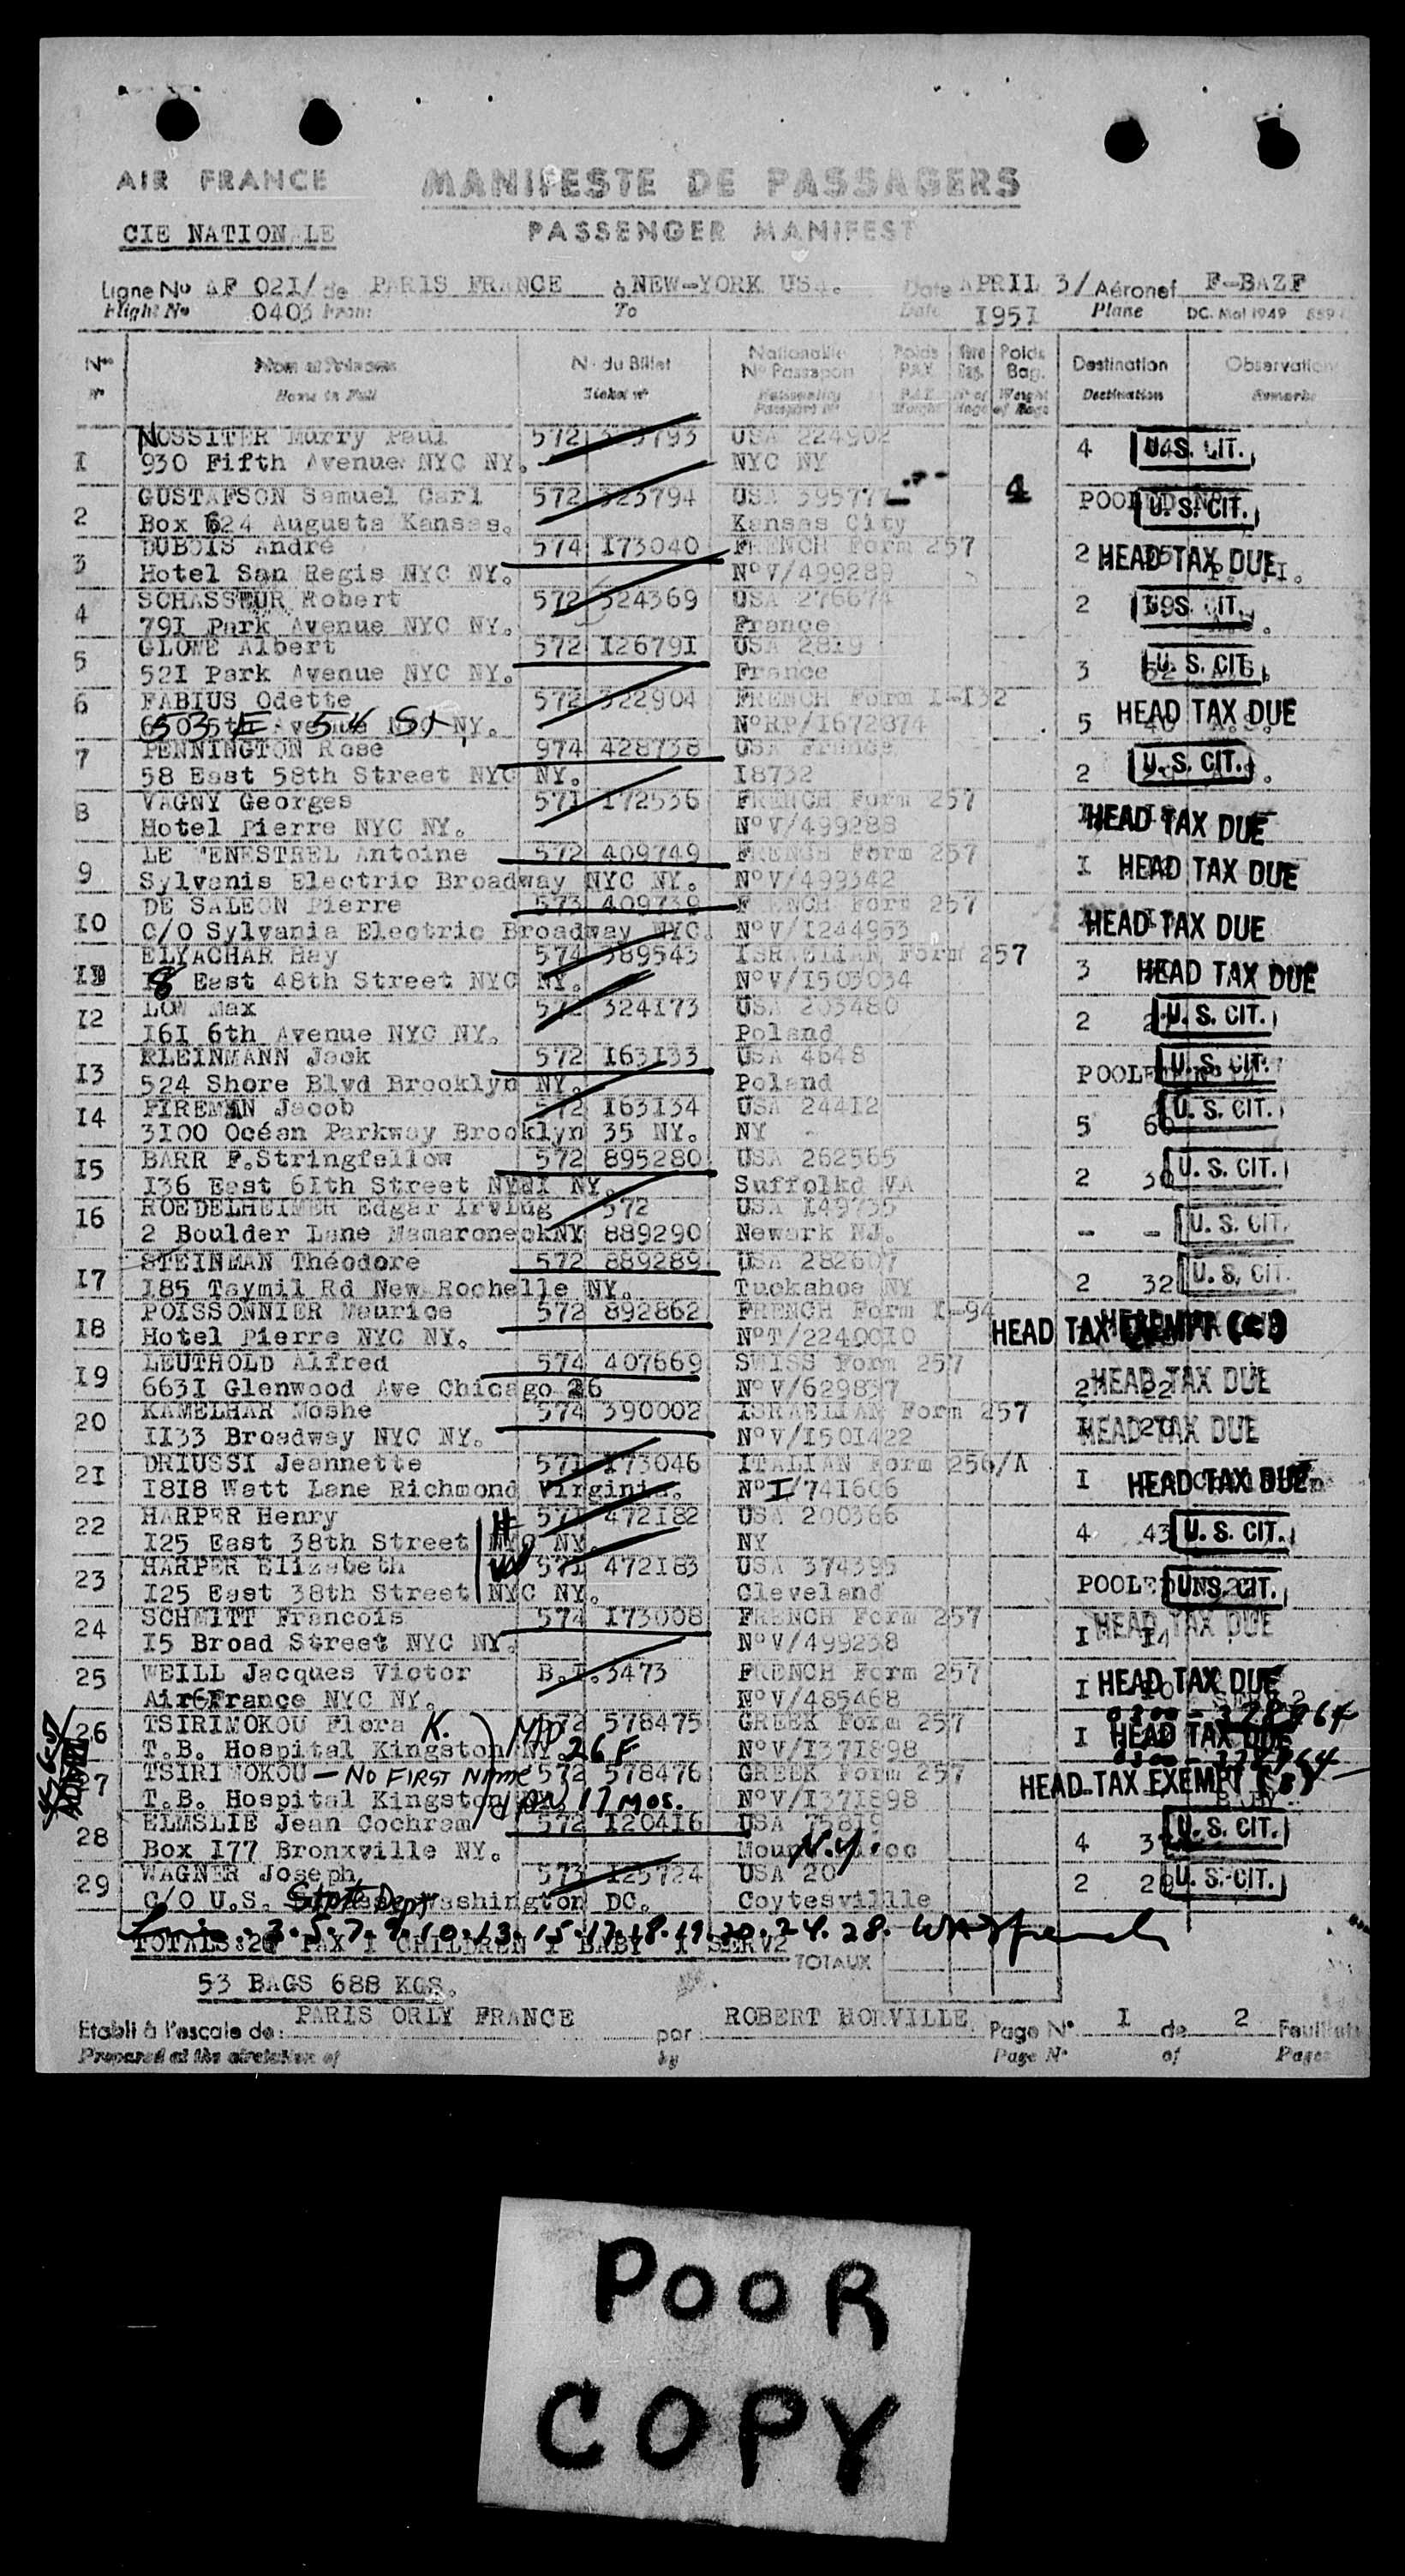 AIR FRANCE MANIFESTE DE PASSAGERS
CIE NATIONALE PASSENGER MANIFEST
Ligne No AF 02I/ de PARIS FRANCE à NEW-YORK USA. Date APRIL 3/ Aéronef F-BAZF
Flight No 0403 From To Date I95I Plane DC. Mai 1949
Nos Nom et Prénoms N. du Billet Nationalité No Passeport Poids PAX Poids Bag. Destination Observation
No Name in Full Ticket no Nationality Passport No Weight of Bags Destination Remarks
NOSSITER Murry Paul 572 323793 USA 224902
I 930 Fifth Avenue NYC NY. NYC NY 4 U.S. CIT.
GUSTAFSON Samuel Carl 572 323794 USA 395777 4 POOLED
2 Box 624 Augusta Kansas. Kansas City U.S. CIT.
DUBOIS André 574 173040 FRENCH Form 257
3 Hotel San Regis NYC NY. N°V/499289 2 HEAD TAX DUE
SCHASSEUR Robert 572 324369 USA 276674
4 79I Park Avenue NYC NY. France 2 U.S. CIT.
GLOWE Albert 572 I2679I USA 2819
5 52I Park Avenue NYC NY. France 3 U.S. CIT.
FABIUS Odette 572 322904 FRENCH Form I-I32
6 53 E 54 St NY. N°RP/I672874 5 HEAD TAX DUE
PENNINGTON Rose 974 428738 USA France
7 58 East 58th Street NYC NY. I8732 2 U.S. CIT.
VAGNY Georges 571 I72536 FRENCH Form 257
8 Hotel Pierre NYC NY. N°V/499288 HEAD TAX DUE
LE MENESTREL Antoine 572 409749 FRENCH Form 257
9 Sylvanis Electric Broadway NYC NY. N°V/499342 I HEAD TAX DUE
DE SALEON Pierre 573 409739 FRENCH Form 257
IO C/O Sylvania Electric Broadway NYC. N°V/I244953 HEAD TAX DUE
ELYACHAR Hay 574 389543 ISRAELIAN Form 257
II 18 East 48th Street NYC NY. N°V/I503034 3 HEAD TAX DUE
LOW Max 572 324I73 USA 203480
I2 I6I 6th Avenue NYC NY. Poland 2 U.S. CIT.
KLEINMANN Jack 572 I63I33 USA 4648
I3 524 Shore Blvd Brooklyn NY. Poland POOLED U.S. CIT.
FIREMAN Jacob 572 I63I34 USA 244I2
I4 3I00 Océan Parkway Brooklyn 35 NY. NY 5 60 U.S. CIT.
BARR F.Stringfellow 572 895280 USA 262565
I5 I36 East 6Ith Street NYC NY. Suffolkd VA 2 30 U.S. CIT.
ROEDELHEIMER Edgar Irving 572 USA I49735
I6 2 Boulder Lane MamaroneckNY 889290 Newark NJ. - - U.S. CIT.
STEINMAN Théodore 572 889289 USA 282607
I7 I85 Taymil Rd New Rochelle NY. Tuckahoe NY 2 32 U.S. CIT.
POISSONNIER Maurice 572 892862 FRENCH Form I-94
I8 Hotel Pierre NYC NY. N°T/22400I0 HEAD TAX EXEMPT
LEUTHOLD Alfred 574 407669 SWISS Form 257
I9 663I Glenwood Ave Chicago 26 N°V/629837 2 22 HEAD TAX DUE
KAMELHAR Moshe 574 390002 ISRAELIAN Form 257
20 II33 Broadway NYC NY. N°V/I50I422 HEAD TAX DUE
DRIUSSI Jeannette 571 I73046 ITALIAN Form 256/A
2I I8I8 Watt Lane Richmond Virginia. N°I/741606 I HEAD TAX DUE
HARPER Henry 571 472I82 USA 200366
22 I25 East 38th Street NYC NY. NY 4 43 U.S. CIT.
HARPER Elizabeth 571 472I83 USA 374395
23 I25 East 38th Street NYC NY. Cleveland POOLED U.S. CIT.
SCHMITT Francois 574 I73008 FRENCH Form 257
24 I5 Broad Street NYC NY. N°V/499238 I I4 HEAD TAX DUE
25 WEILL Jacques Victor B.T.3473 FRENCH Form 257
Air France NYC NY. N°V/485468 I HEAD TAX DUE
26 TSIRIMOKOU Flora K. 572 578475 GREEK Form 257
T.B. Hospital Kingston NY. 26 F N°V/I37I898 I HEAD TAX DUE
27 TSIRIMOKOU - NO FIRST NAME 572 578476 GREEK Form 257 HEAD TAX EXEMPT
T.B. Hospital Kingston 17 MOS. N°V/I37I898 BABY
28 ELMSLIE Jean Cochram 572 I204I6 USA 758I9
Box I77 Bronxville NY. N.Y. 4 U.S. CIT.
29 WAGNER Joseph 573 I25724 USA 20
C/O U.S. State Dept Washington DC. Coytesvillle 2 U.S. CIT.
3. 5. 7. 9. 10. 13. 15. 17. 18. 19. 20. 24. 28.
TOTALS: PAX I CHILDREN I BABY I SERV2
TOTAUX
53 BAGS 688 KGS.
Etabli à l'escale de: PARIS ORLY FRANCE par ROBERT HORVILLE Page N° I de 2 Feuillets
Prepared at the airstation of by Page N° of Pages
POOR
COPY